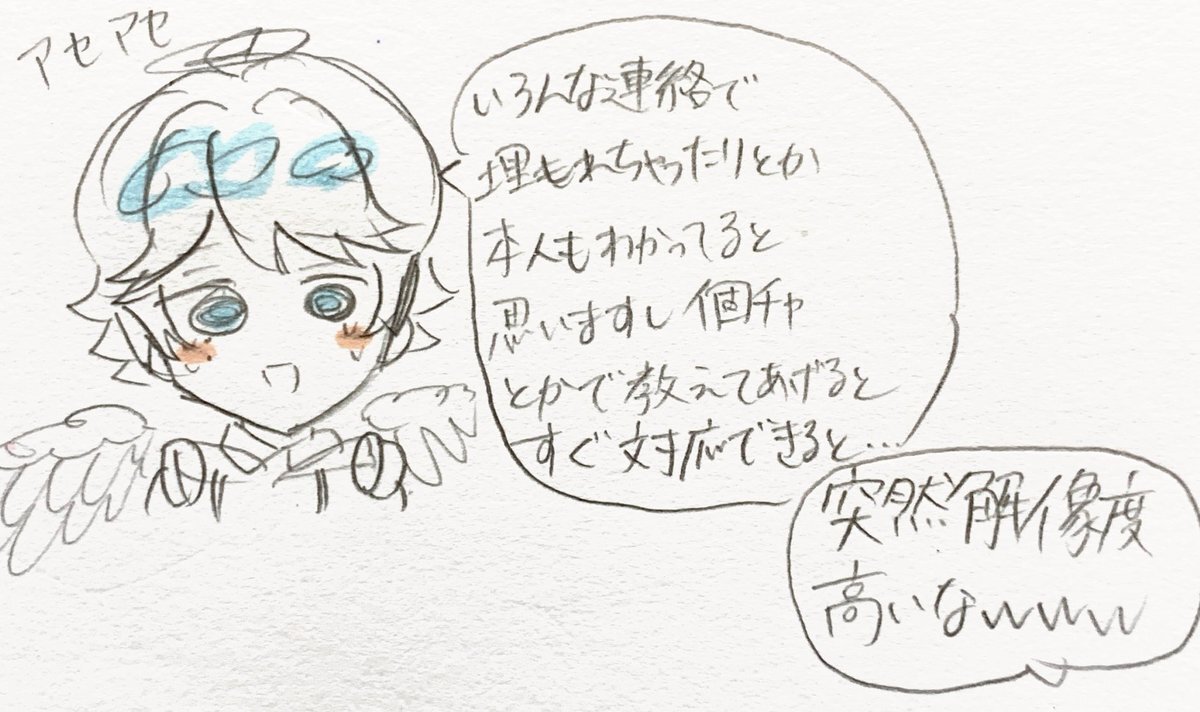 アセアセ
いろんな連絡で
埋もれちゃったりとか
本人もわかってると
思いますし個チャ
とかで教えてあげると
すぐ対応できると…
突然解像度
高いなwww